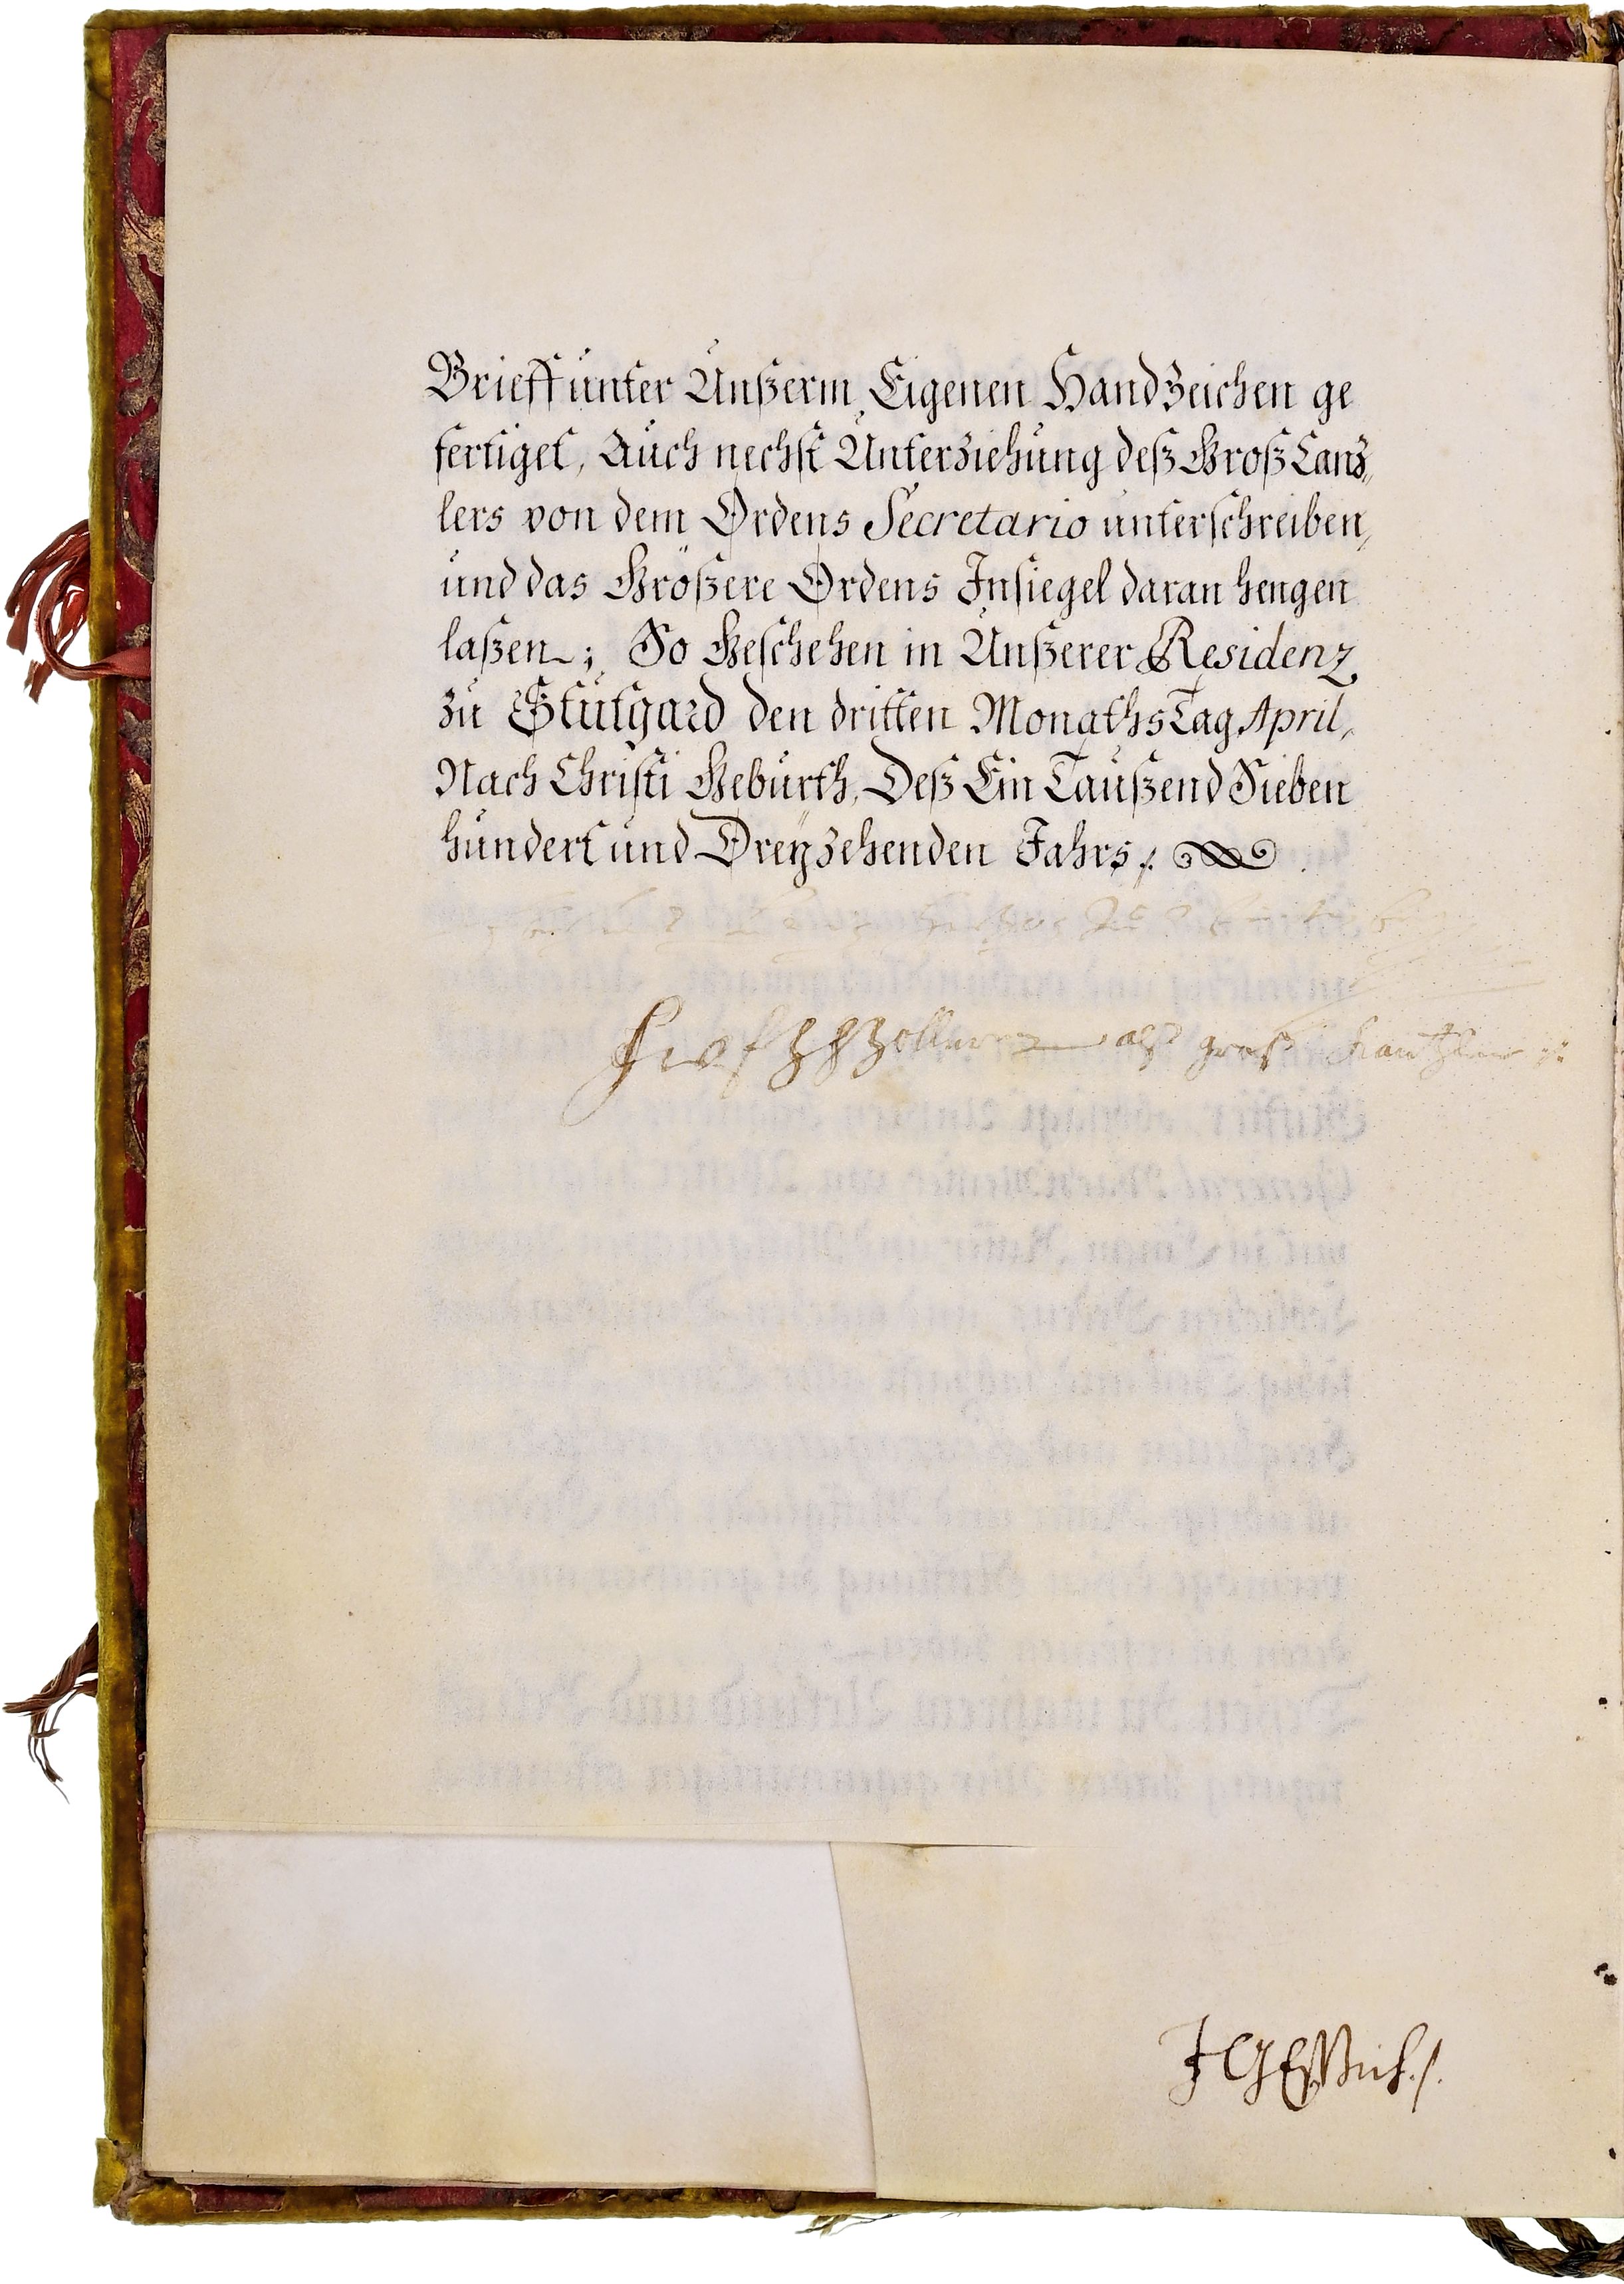 Brieff unter Unßerm Eigenen Handzeichen ge
fertiget, Auch nechst Unterziehung deß Groß Canz,,
lers von dem Ordens Secretario unterschreiben,
und das Größere Ordens Insiegel daran hengen
laßen; So Geschehen in Unßerer Residenz
zu Stutgard den dritten Monaths Tag April,
Nach Christi Geburth, Deß Ein Taußend Sieben
hundert und Dreyzehenden Jahrs ./.
Zollern als groß Cantzler